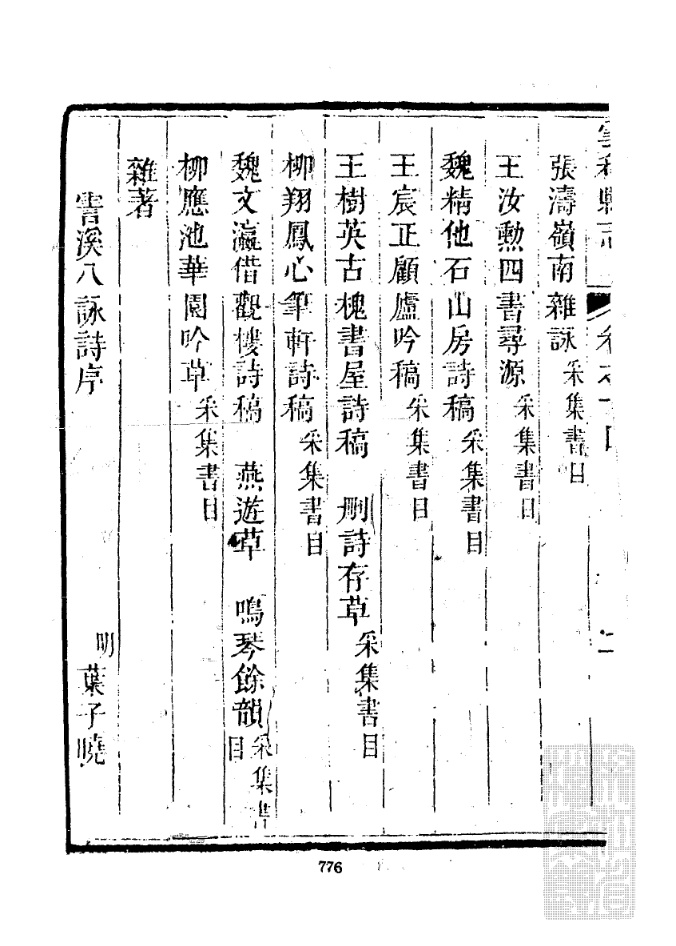 雲和縣志 卷之十四 一
張濤嶺南雜詠 采集書目
王汝勲四書尋源 采集書目
魏精他石山房詩稿 采集書目
王宸正顧廬吟稿 采集書目
王樹英古槐書屋詩稿 刪詩存草 采集書目
柳翔鳳心筆軒詩稿 采集書目
魏文瀛借觀樓詩稿 燕遊草 鳴琴餘韻 采集書目
柳應池華園吟草 采集書目
雜著
霅溪八詠詩序 明 葉子曉
776